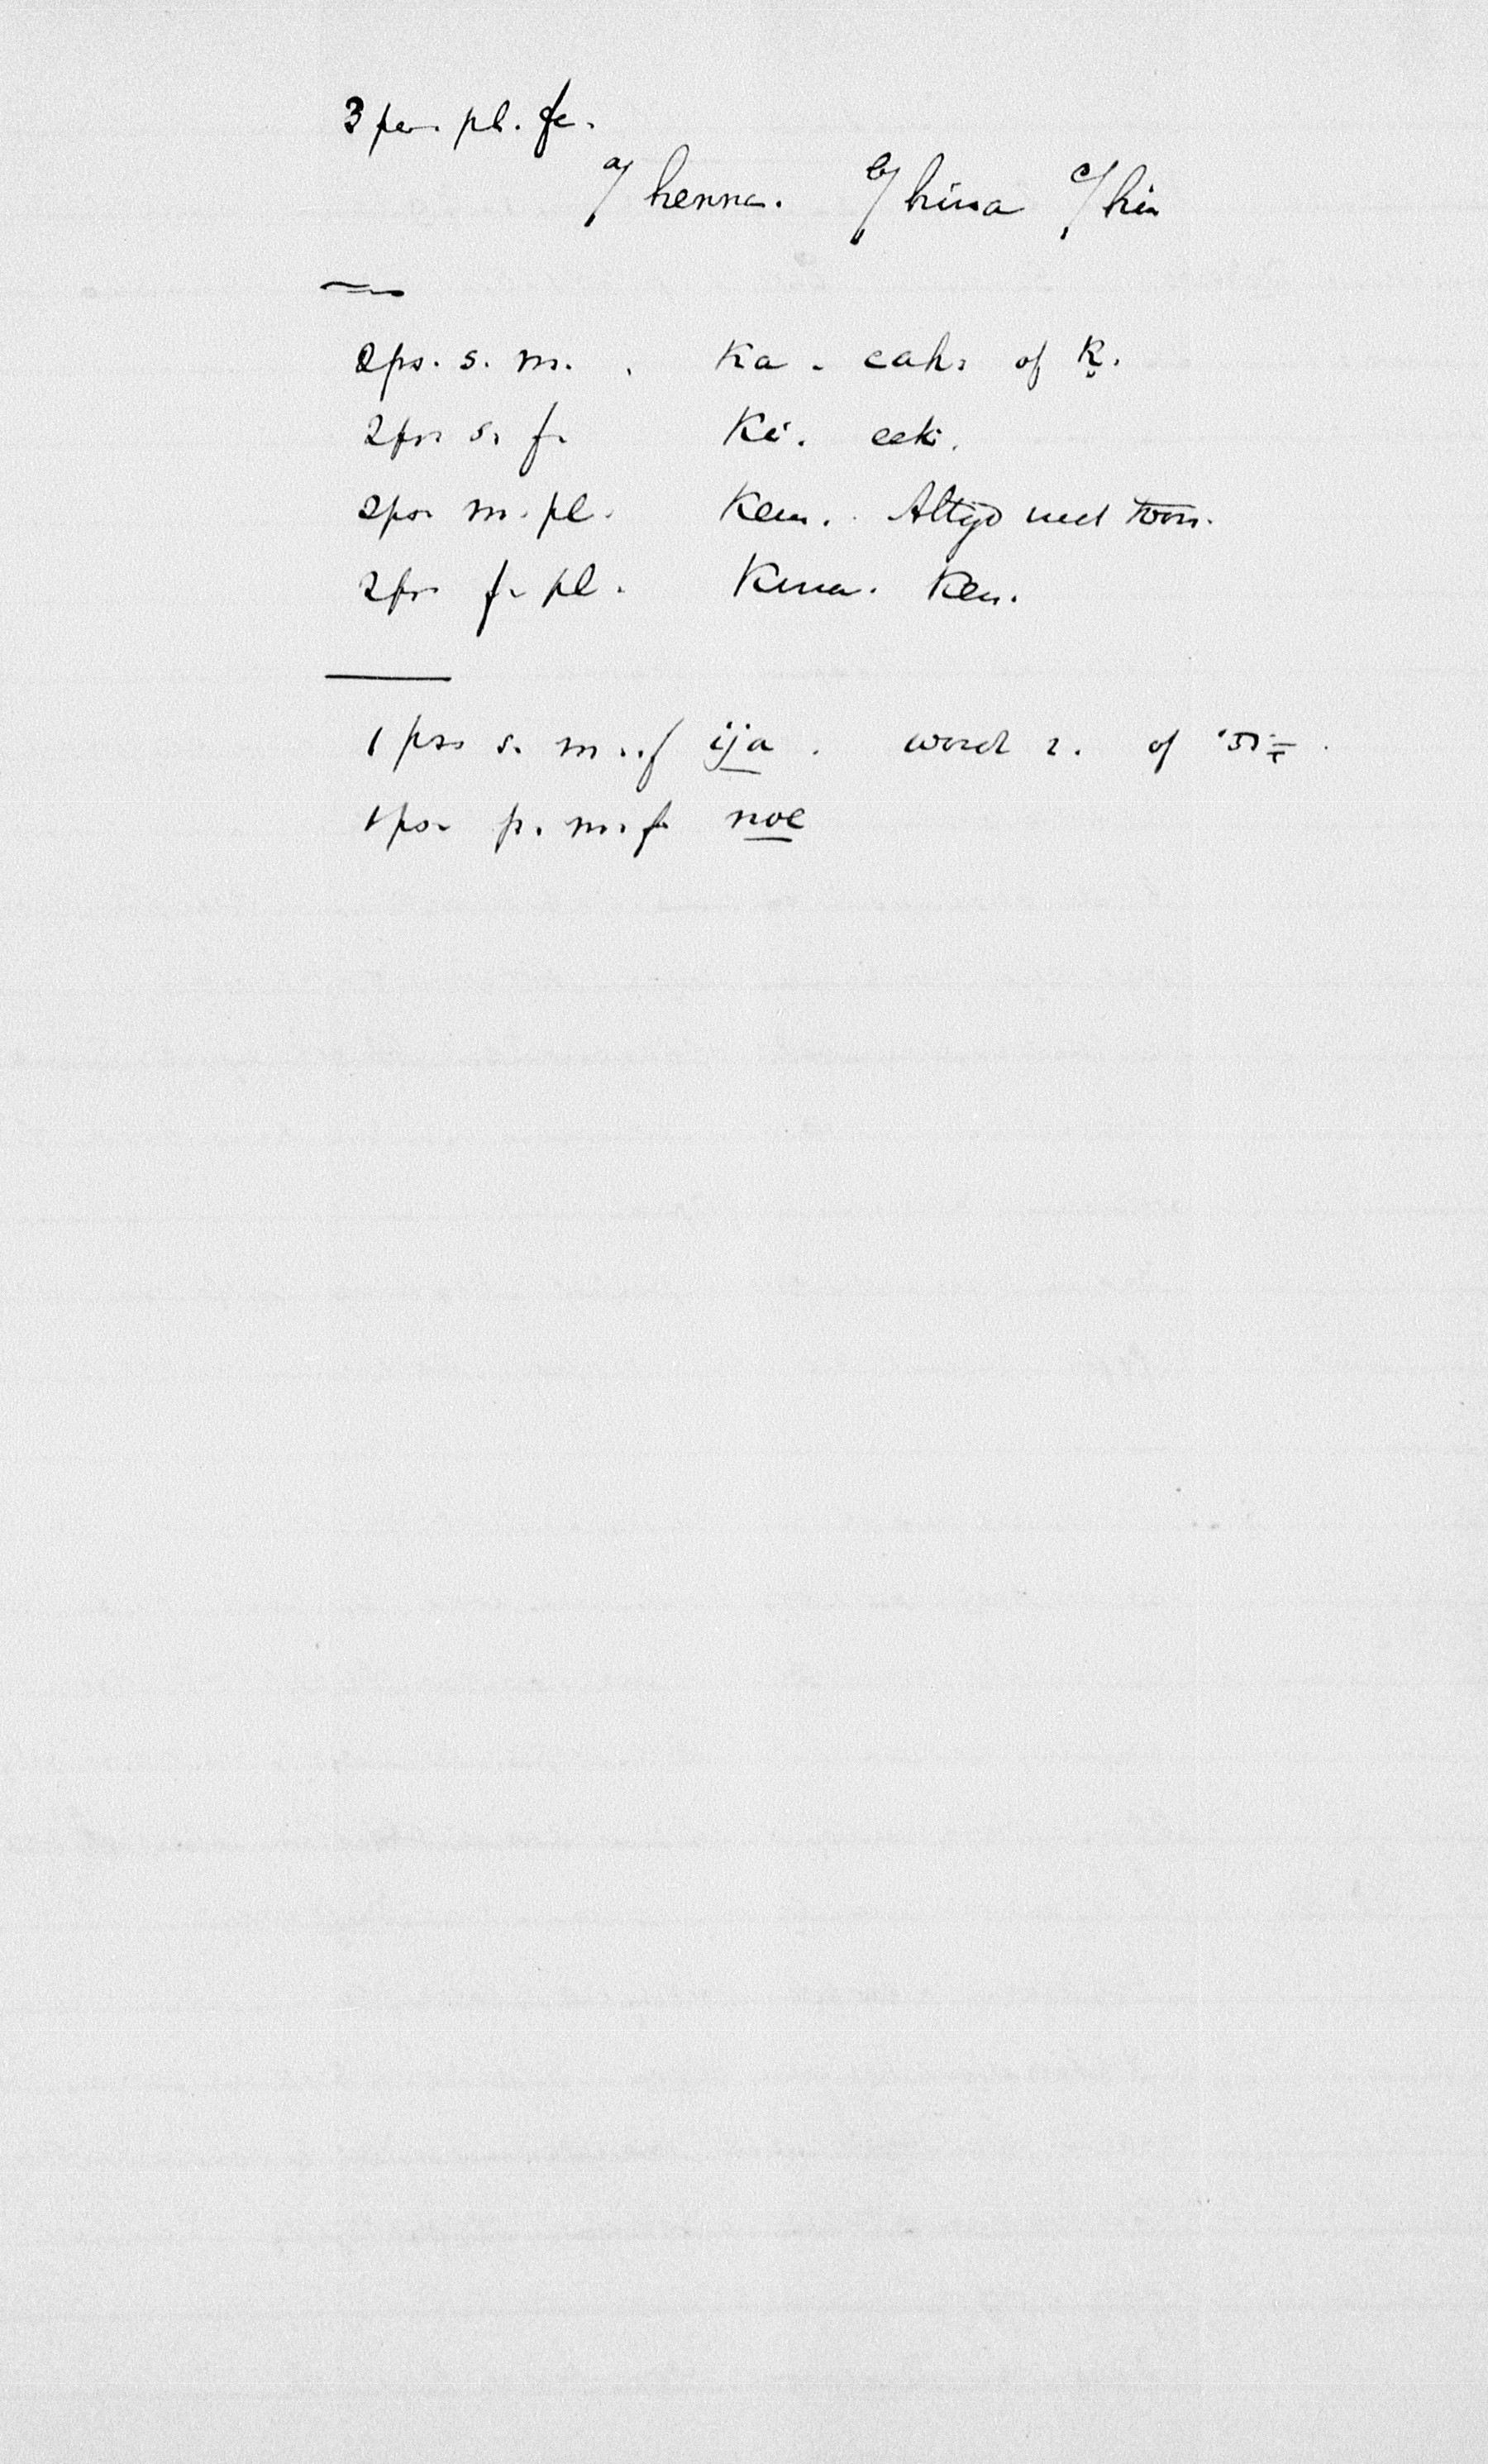 3 per. pl. fe.
a/ henna. b/ hina c/ hin
2 ps. s. m. . Ka . cah. of K.
2 ps. s. f. Ki. eeki.
2 ps. m. pl. Kem. Altijd met toon.
2 ps. f. pl. Kena. Ken.
1 prs s. m. f ija . word of
1 ps. p. m. f. noe